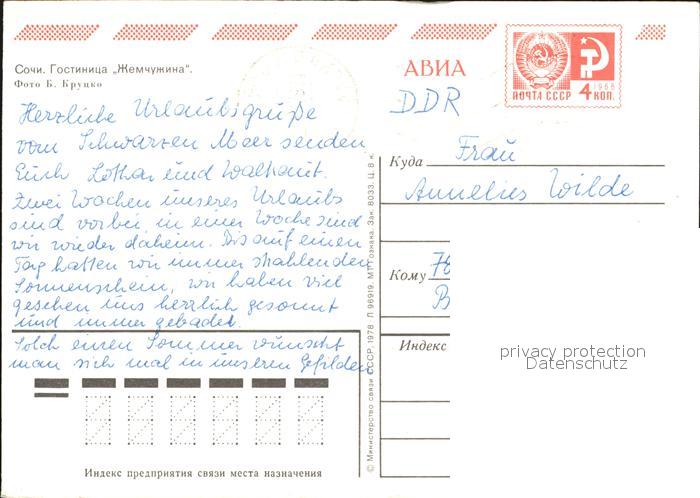 Сочи. Гостиница „Жемчужина".
Фото Б. Круцко
АВИА
ПОЧТА СССР 4 КОП.
1966
DDR
Herzliche Urlaubsgrüße
vom Schwarzen Meer senden
Euch Lothar und Waltraut.
Zwei Wochen unseres Urlaubs
sind vorbei, in einer Woche sind
wir wieder daheim. Bis auf einen
Tag hatten wir immer strahlenden
Sonnenschein, wir haben viel
gesehen uns herrlich gesonnt
und immer gebadet.
Solch einen Sommer wünscht
man sich mal in unseren Gefilden
Куда Frau
Wilde
Кому 7
B
Индекс
privacy protection
Datenschutz
Индекс предприятия связи места назначения
© Министерство связи СССР, 1978. Л 96919. МТ Гознака. Зак. 8033. Ц. 8 к.